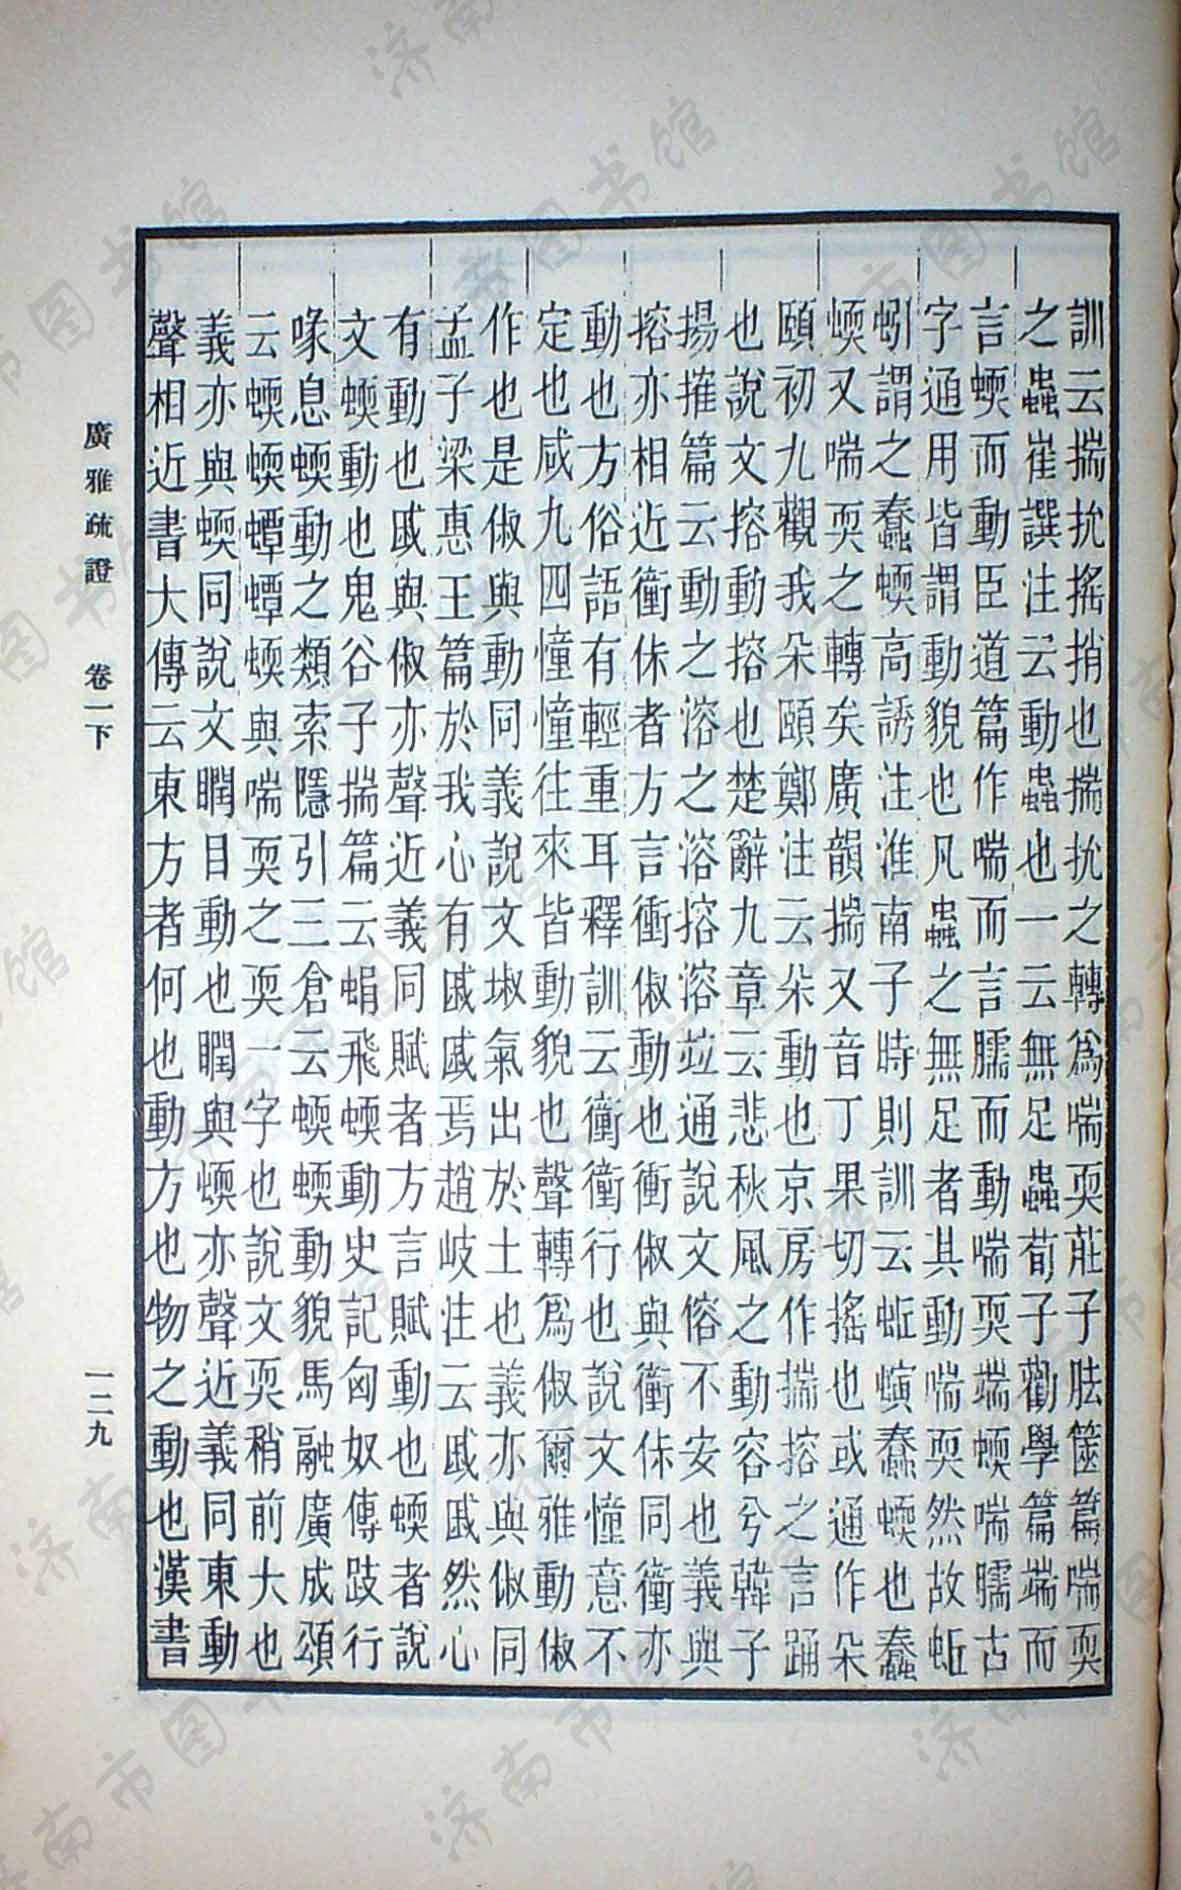 訓云揣抁搖捎也揣抁之轉爲喘耎莊子胠篋篇喘耎
之蟲崔譔注云動蟲也一云無足蟲荀子勸學篇端而
言蝡而動臣道篇作喘而言臑而動喘耎端蝡喘臑古
字通用皆謂動貌也凡蟲之無足者其動喘耎然故蚯
蚓謂之蠢蝡高誘注淮南子時則訓云蚯螾蠢蝡也蠢
蝡又喘耎之轉矣廣韻揣又音丁果切搖也或通作朵
頤初九觀我朵頤鄭注云朵動也京房作揣搈之言踊
也說文搈動搈也楚辭九章云悲秋風之動容兮韓子
揚搉篇云動之溶之溶搈溶竝通說文傛不安也義與
搈亦相近衝㑘者方言衝俶動也衝俶與衝㑘同衝亦
動也方俗語有輕重耳釋訓云衝衝行也說文憧意不
定也咸九四憧憧往來皆動貌也聲轉爲俶爾雅動俶
作也是俶與動同義說文埱氣出於土也義亦與俶同
孟子梁惠王篇於我心有戚戚焉趙岐注云戚戚然心
有動也戚與俶亦聲近義同賦者方言賦動也蝡者說
文蝡動也鬼谷子揣篇云蜎飛蝡動史記匈奴傳跂行
喙息蝡動之類索隱引三倉云蝡蝡動貌馬融廣成頌
云蝡蝡蟫蟫蝡與喘耎之耎一字也說文耎稍前大也
義亦與蝡同說文瞤目動也瞤與蝡亦聲近義同東動
聲相近書大傳云東方者何也動方也物之動也漢書
廣雅疏證 卷一下
一二九
济南市图书馆